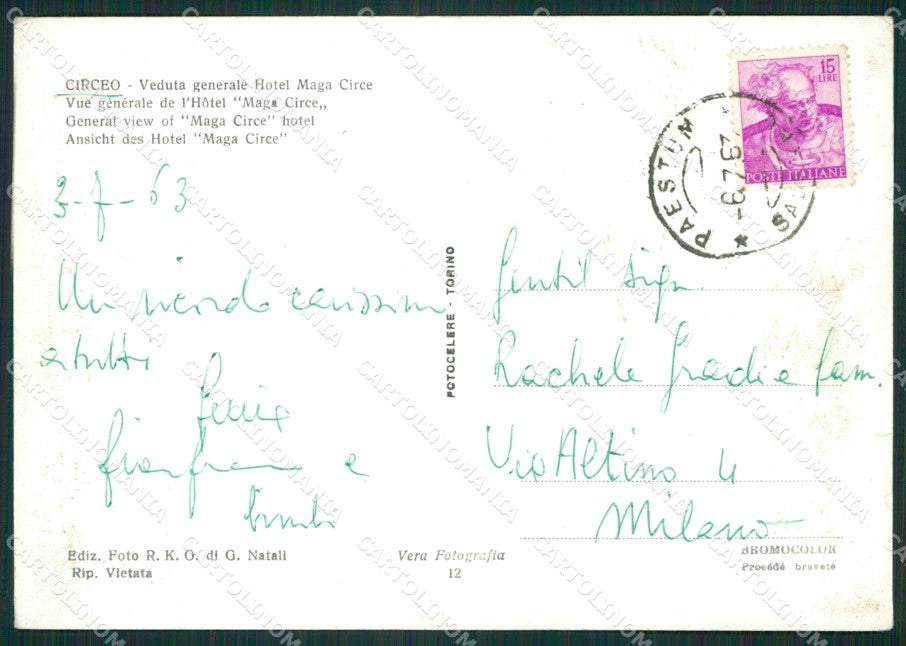 CIRCEO - Veduta generale Hotel Maga Circe
Vue générale de l'Hôtel "Maga Circe„
General view of "Maga Circe" hotel
Ansicht des Hotel "Maga Circe"
3-7-63
Un ricordo carissimo
a tutti
Gianfranco e
bimbi
Ediz. Foto R. K. O. di G. Natali
Rip. Vietata
Vera Fotografia
12
FOTOCELERE - TORINO
15
LIRE
POSTE ITALIANE
PAESTUM
Gentil Sign.
Rachele Gradi e fam.
Via Altino 4
Milano
BROMOCOLOR
Procédé breveté
CARTOLINOMANIA